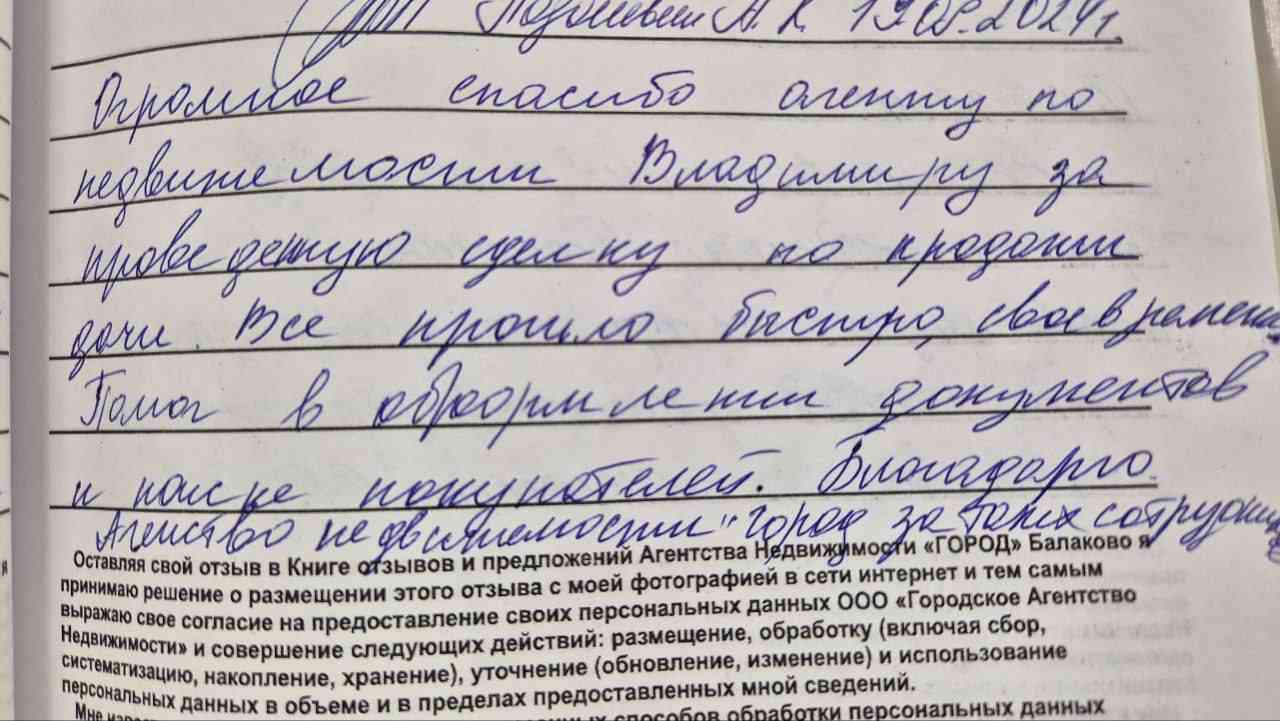 А.К. 19.08.2024г.
Огромное спасибо агенту по
недвижемости Владимиру за
проведенную сделку по продажи
дачи. Все прошло быстро, своевременн
Помог в оформлении документов
и поиске покупателей. Благодарю
Агенство недвижемости "город за таких сотрудни
Оставляя свой отзыв в Книге отзывов и предложений Агентства Недвижимости «ГОРОД» Балаково я
принимаю решение о размещении этого отзыва с моей фотографией в сети интернет и тем самым
выражаю свое согласие на предоставление своих персональных данных ООО «Городское Агентство
Недвижимости» и совершение следующих действий: размещение, обработку (включая сбор,
систематизацию, накопление, хранение), уточнение (обновление, изменение) и использование
персональных данных в объеме и в пределах предоставленных мной сведений.
Мне способов обработки персональных данных